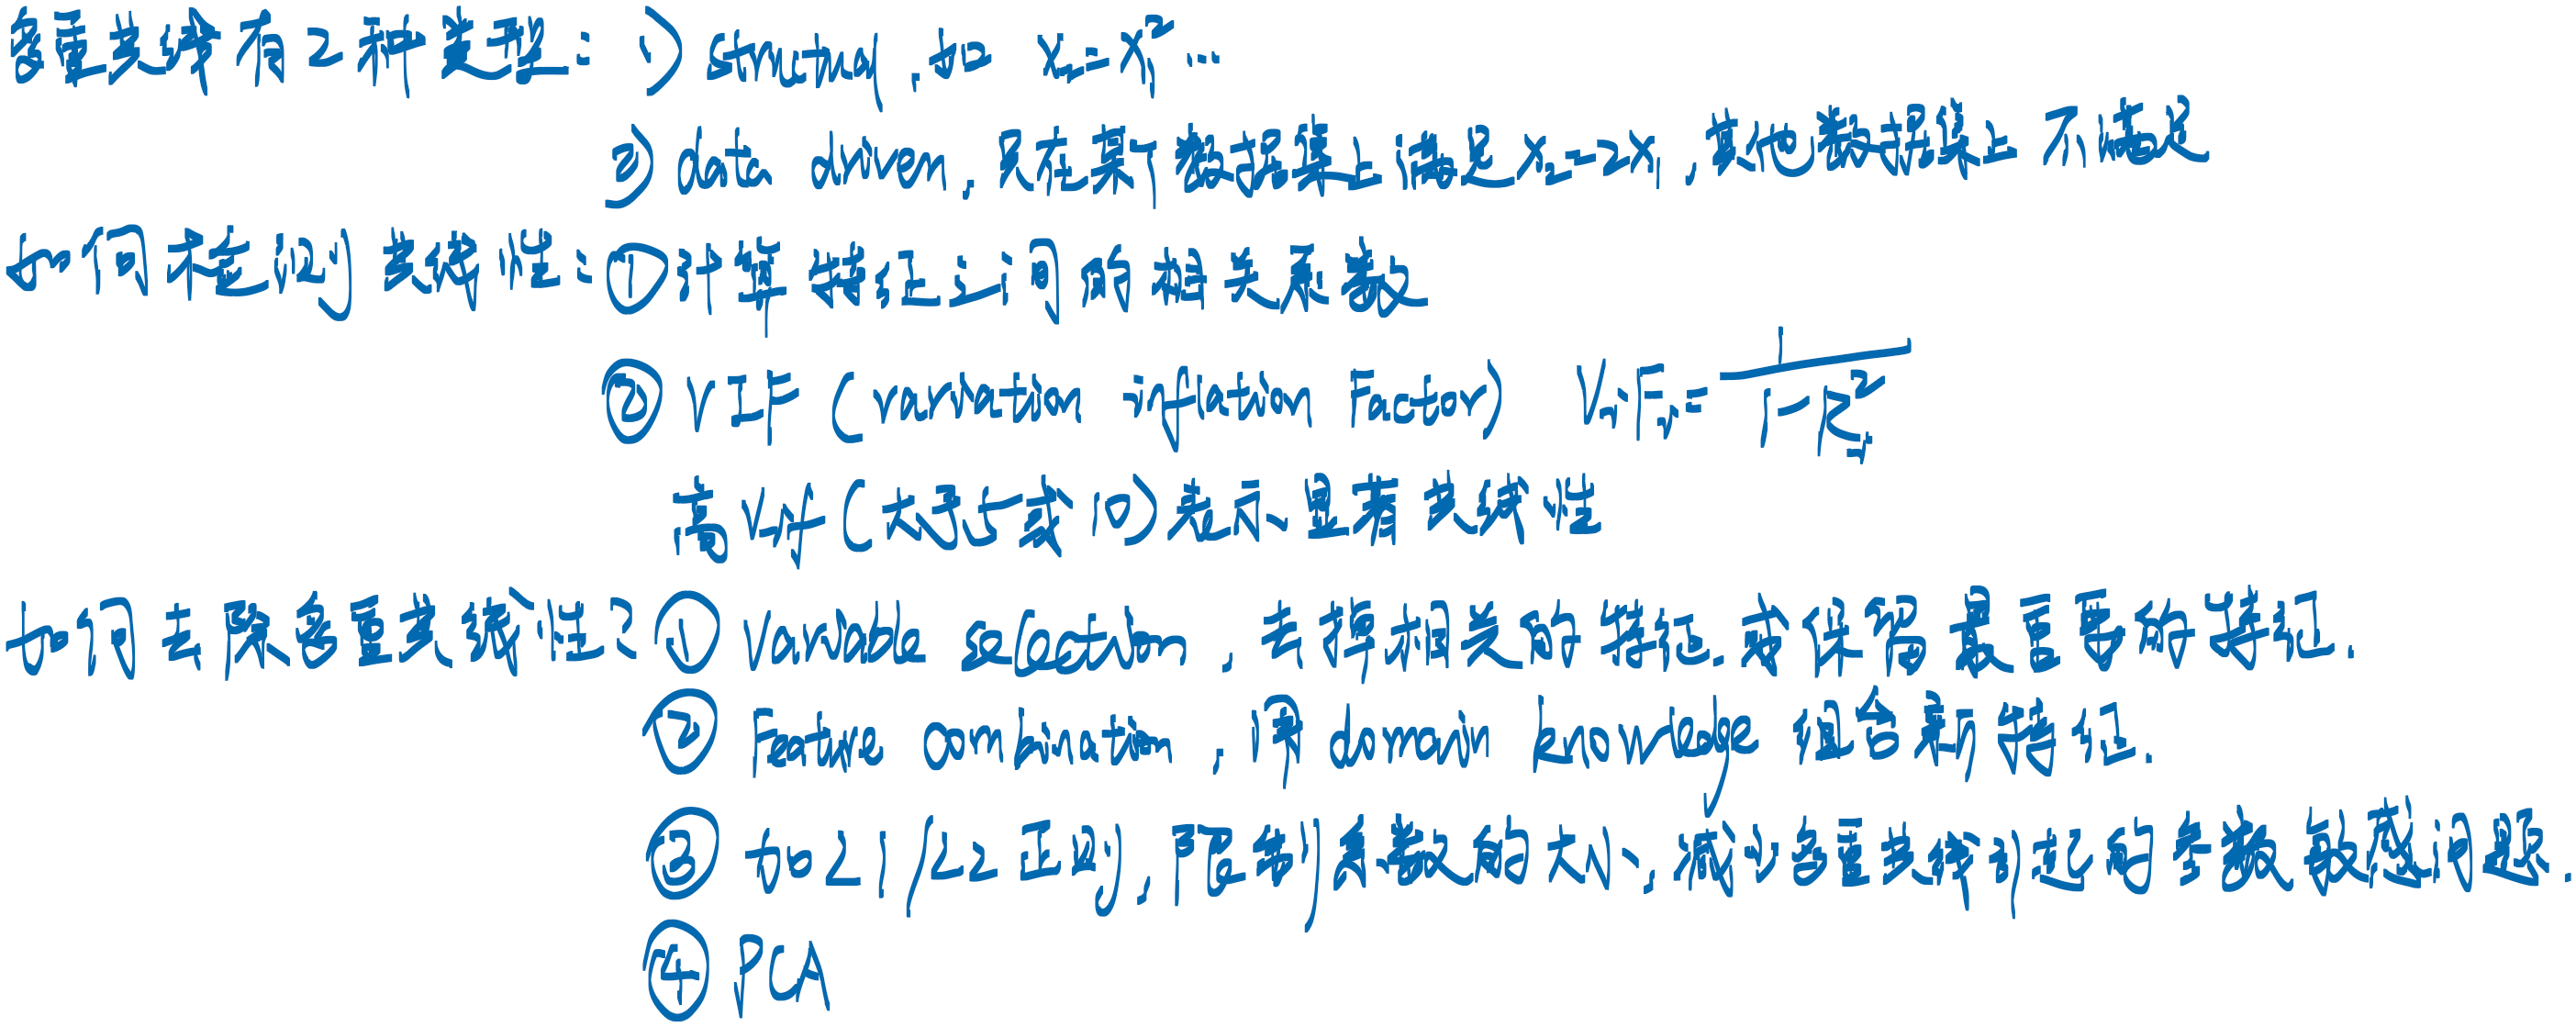 多重共线有2种类型: 1) structual, 如 x₂=x₁²...
2) data driven, 只在某个数据集上满足x₂=2x₁, 其他数据集上不满足
如何检测共线性: ①计算特征之间的相关系数
② VIF (variation inflation Factor) ViFi = 1/(1-Ri²)
高Vif(大于5或10)表示显著共线性
如何去除多重共线性? ① Variable selection, 去掉相关的特征.或保留最重要的特征.
② Feature combination, 用 domain knowledge 组合新特征.
③ 加L1/L2正则, 限制系数的大小, 减少多重共线引起的参数敏感问题.
④ PCA